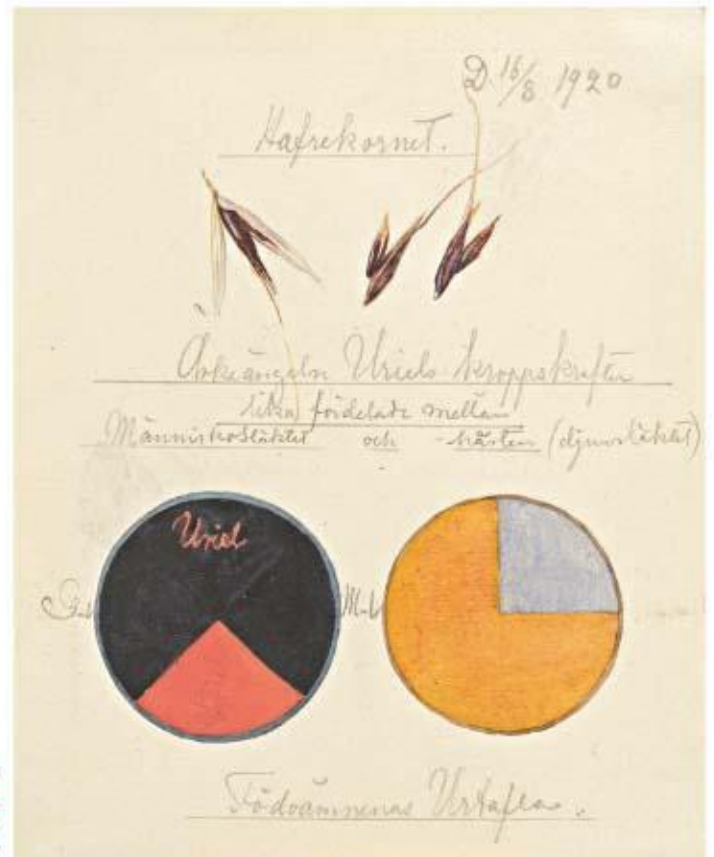 D. 16/8 1920
Hafrekornet.
Ärkeängeln Uriels kroppskrafter
lika fördelade mellan
Människosläktet och hästen (djursläktet)
Uriel
M-l
Födoämnenas Urtafla.